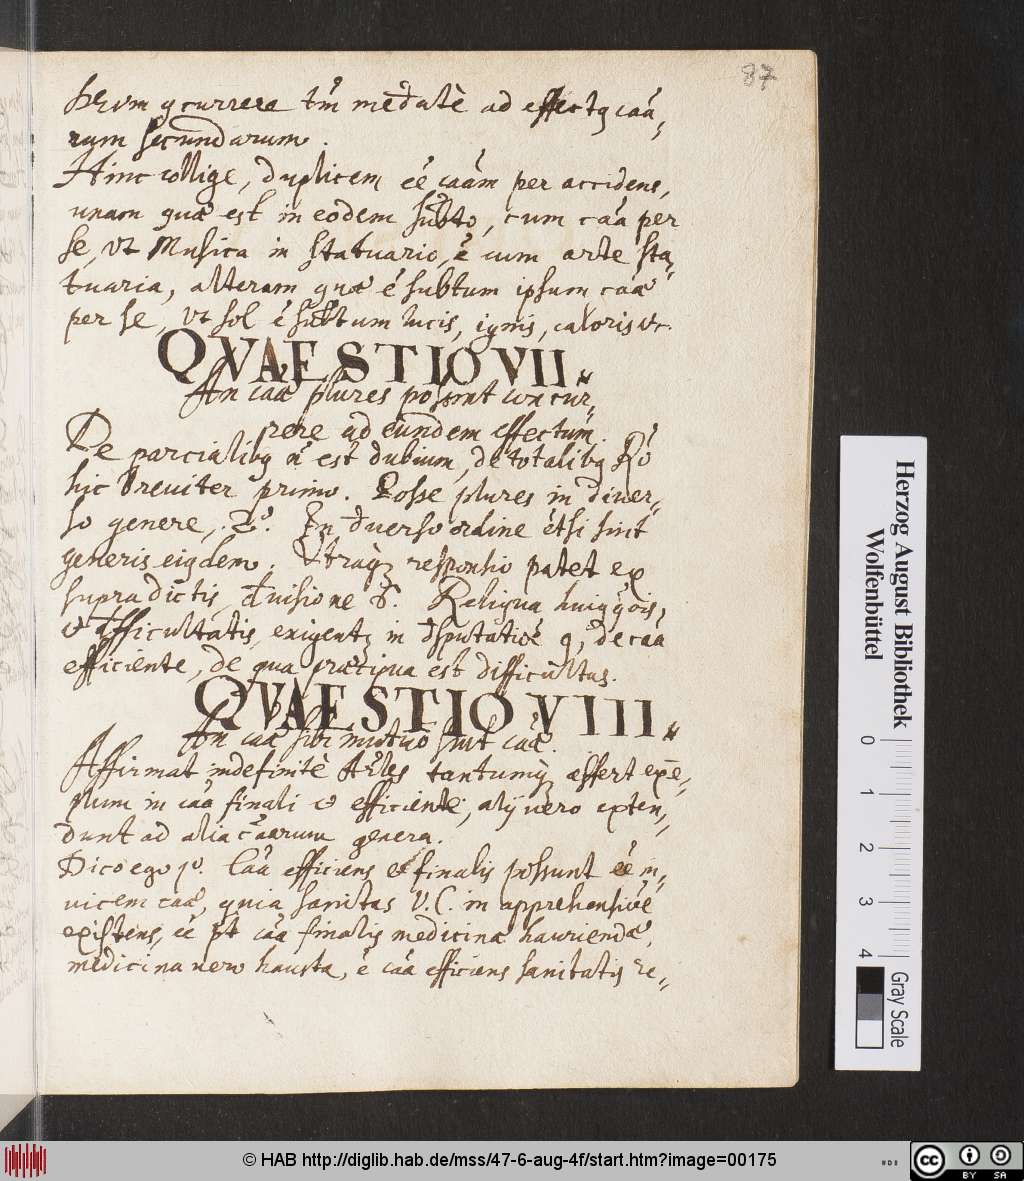 87
DEum 9currere tm̃ med̃atè ad effect9 caa,,
rum secundarum.
Hinc collige, duplicem eé caãm per accidens,
unam quæ est in eodem sub̃to, cum caã per
se, ut Musica in statuario, é cum arte sta,,
tuaria, alteram quæ é subtum ipsum caæ
per se, ut sol é subtum lucis, ignis, caloris &c.
QVÆSTIO VII.
An caæ plures possint concur,,
rere ad eundem effectum.
De parcialibq ñ est dubium, de totalibq Ro
hic breuiter primo. Posse plures in diuer,,
so genere, 2º. In diuerso ordine etsi sint
generis eiqdem. Vtraq; responsio patet ex
supra dictis, diuisione 6. Reliqua huiq qois,
& difficultatis, exigentq in dsputatioe 9, de caa
efficiente, de qua præcipua est difficultas.
QVÆSTIO VIII.
An caæ sibi mutuo sint caæ.
Affirmat indefinitè Arles tantumq; affert exē,,
plum in caa finali & efficiente, alij uero exten,,
dunt ad alia caarum genera.
Dico ego 1º. Caa efficiens et finalis possunt eé in,,
uicem caæ, quia sanitas V.C. in apprehensiué
existens, eé pt caa finalis medicinæ hauriendæ,
medicina uero hausta, é caa efficiens sanitatis re,,
Herzog August Bibliothek
Wolfenbüttel
0 1 2 3 4
Gray Scale
© HAB http://diglib.hab.de/mss/47-6-aug-4f/start.htm?image=00175
cc BY SA